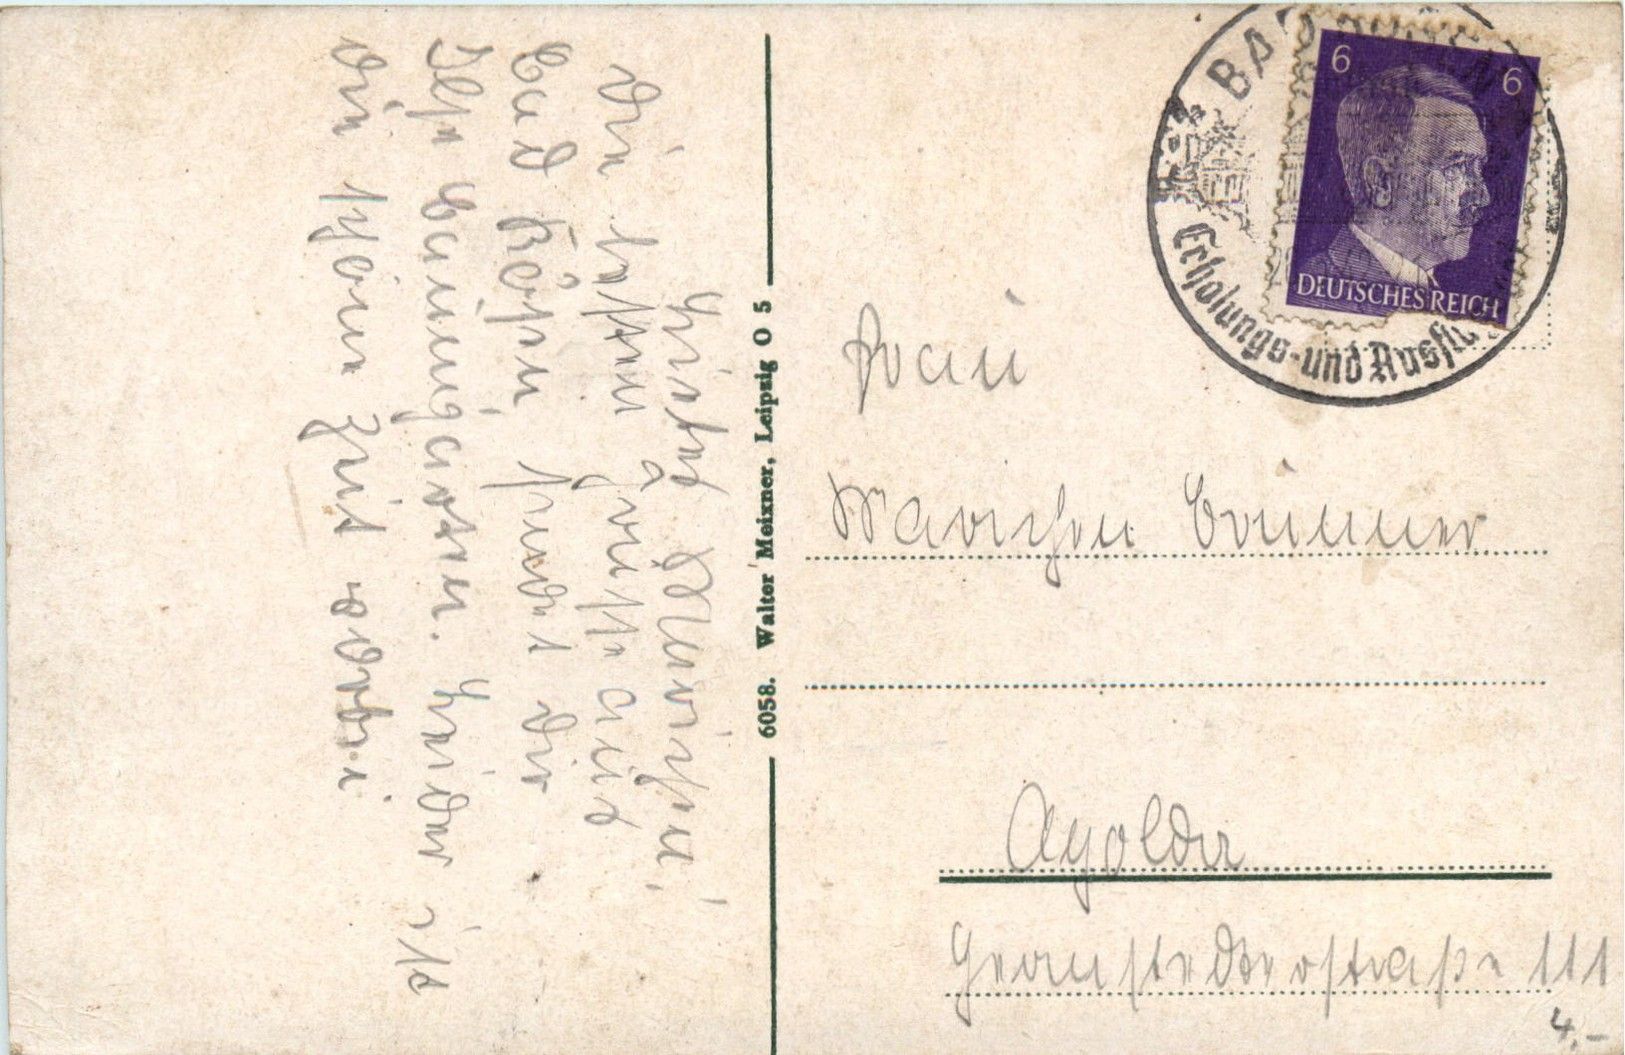 Liebes Mariechen,
die besten Grüße aus
Bad Kösen sendet dir
Ilse Baumgarten. Leider ist
die schöne Zeit vorbei.
6058. Walter Meixner, Leipzig O 5
BAD
Erholungs- und
6 6
DEUTSCHES REICH
Frau
Mariechen Brümmer
Apolda
straße 111
4.-